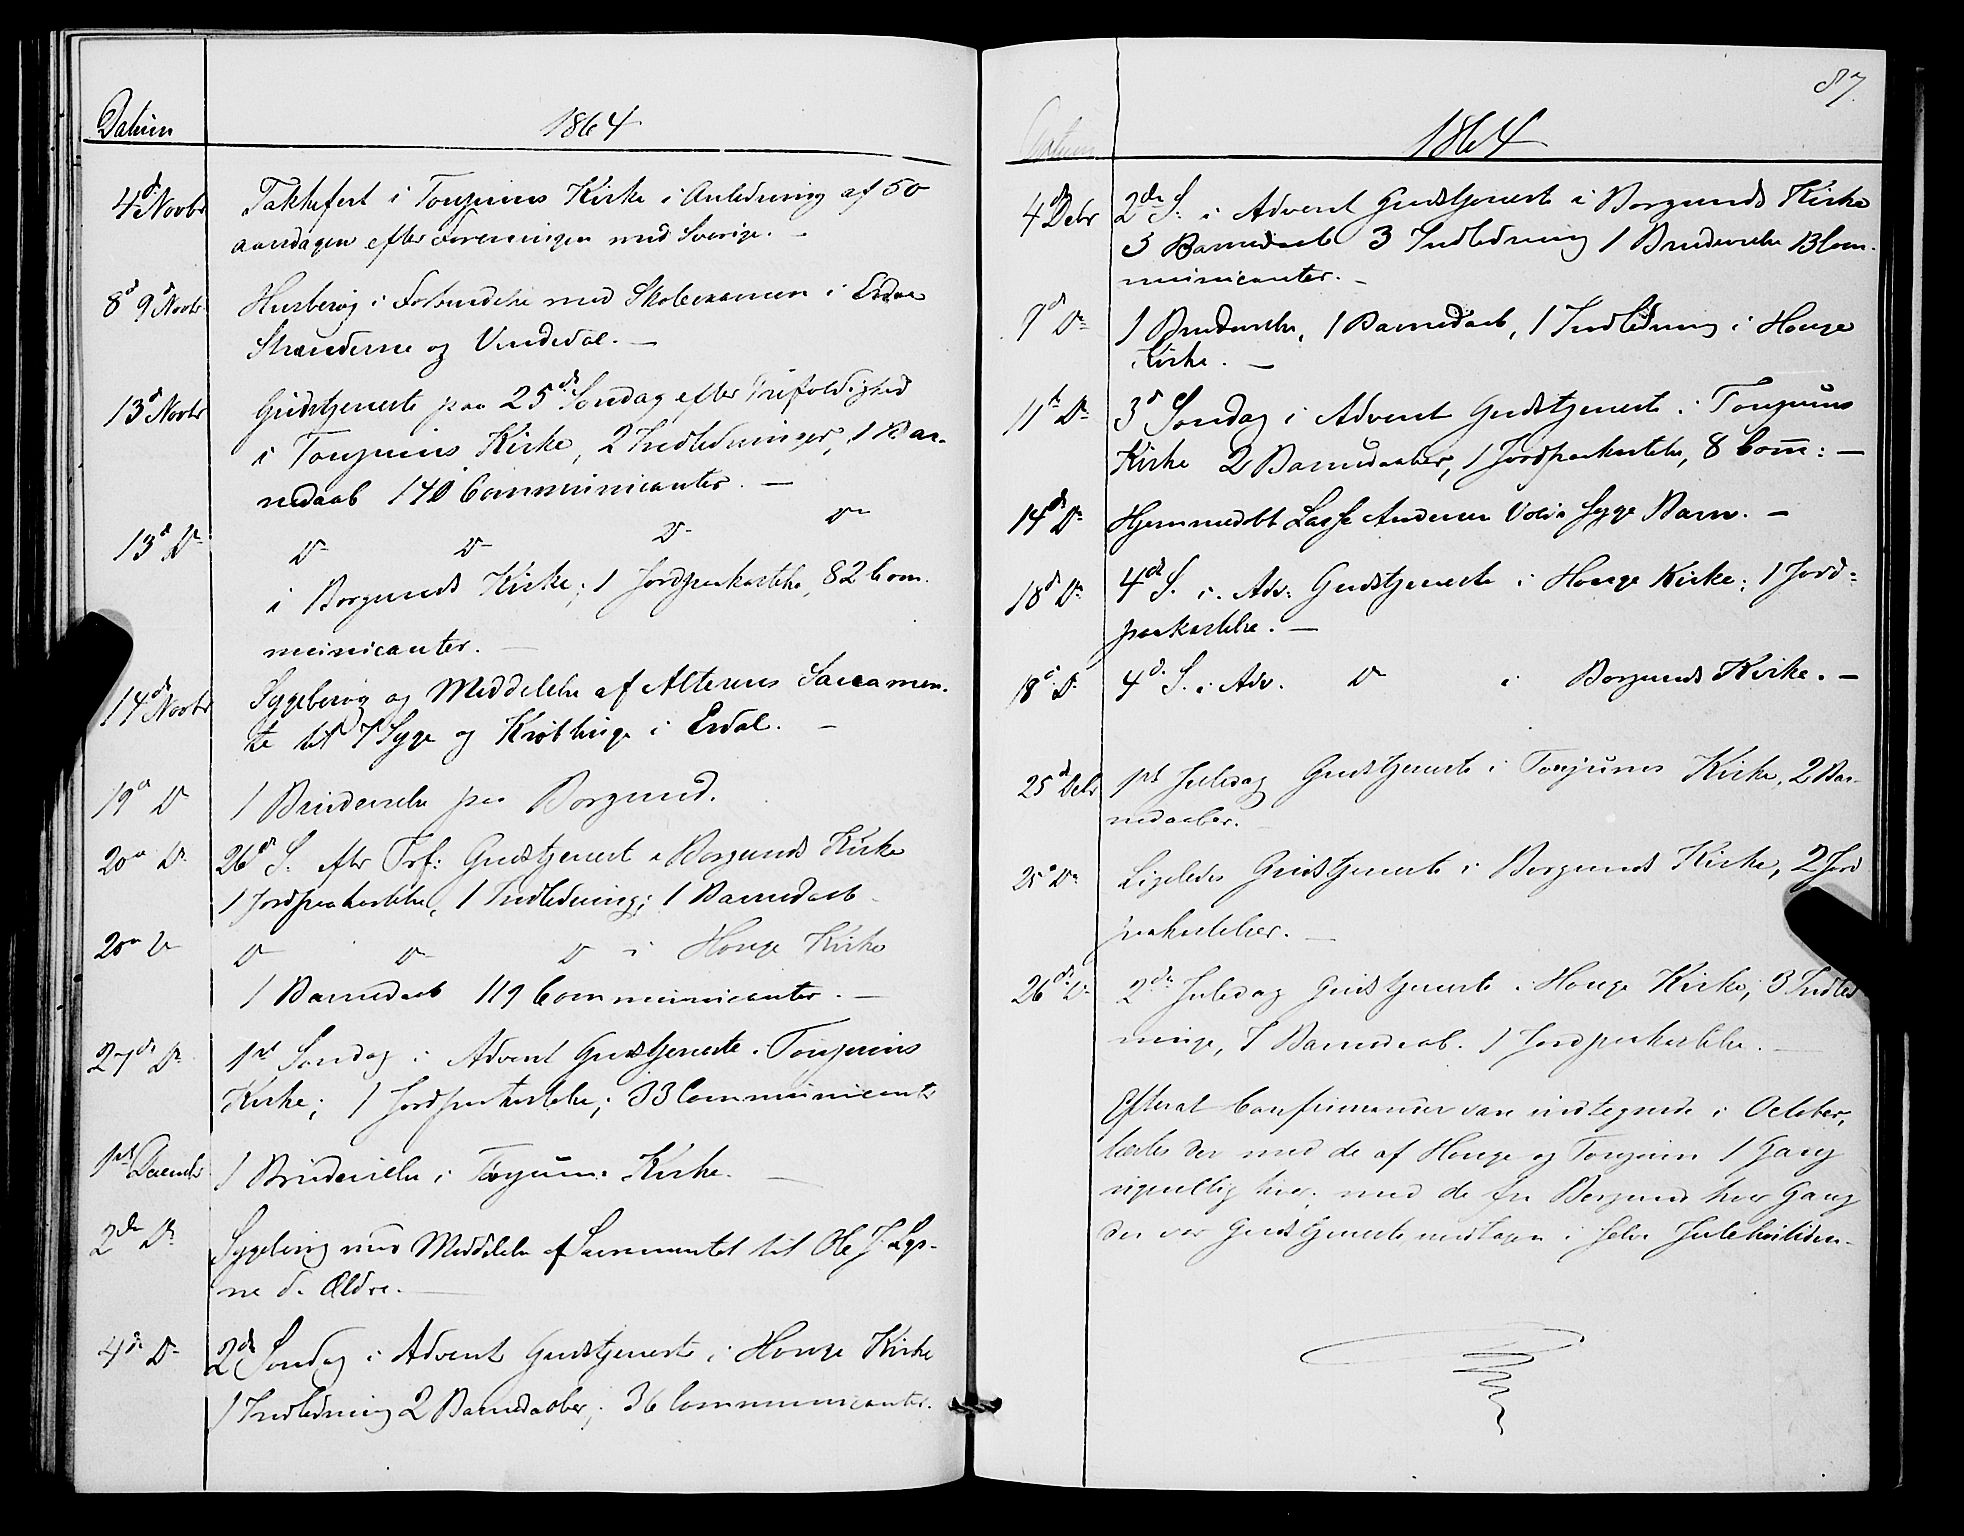 Datum
1864
4d Novbr
Takkefest i Tonjums Kirke i Anledning af 50
aarsdagen efter Foreningen med Sverige. —
8d 9d Novbr
Husbesøg i Forbindelse med Skoleexamen i Erdal
Strænderne og Vindedal. —
13d Novbr
Gudstjeneste paa 25de Søndag efter Trefoldighed
i Tonjums Kirke, 2 Indledninger, 1 Bar-
nedaab 140 Communicanter. —
13d Do
Do Do Do Do
i Borgunds Kirke; 1 Jordpaakastelse, 82 Com-
municanter. —
14de Novbr
Sygebesøg og Meddelelse af Alterens Sacramen-
te til 7 Syge og Krøblinge i Erdal. —
19d Do
1 Brudevielse paa Borgund.
20d Do
26de S. efter Tref: Gudstjeneste i Borgunds Kirke
1 Jordpaakastelse, 1 Indledning; 1 Barnedaab
20d Do
Do Do Do i Houge Kirke
1 Barnedaab 119 Communicanter. —
27de Do
1ste Søndag i Advent Gudstjeneste i Tonjums
Kirke; 1 Jordpaakastelse; 33 Communicant
1ste Decembr
1 Brudevielse i Tonjums Kirke. —
2de Do
Sygebesøg med Meddelelse af Sacramentet til Ole J. Lys-
ne d. Ældre. —
4de Do
2de Søndag i Advent Gudstjeneste i Houge Kirke
1 Indledning 2 Barnedaaber; 36 Communicanter.
87.
Datum
1864
4d Debr
2den S. i Advent Gudstjeneste i Borgunds Kirke
3 Barnedaab 3 Indledning 1 Brudevielse 13 Com-
municanter. —
9d Do
1 Brudevielse, 1 Barnedaab, 1 Indledning i Houge
Kirke. —
11te Do
3d Søndag i Advent Gudstjeneste i Tonjums
Kirke 2 Barnedaaber, 1 Jordpaakastelse, 8 Com: —
14de Do
Hjemmedøbt Lasse Andersen Volds syge Barn. —
18d Do
4de S. i Adv: Gudstjeneste i Houge Kirke; 1 Jord-
paakastelse. —
18d Do
4d S. i Adv. Do i Borgunds Kirke. —
25d Debr
1ste Juledag Gudstjeneste i Tonjums Kirke, 2 Bar-
nedaaber.
25d Do
Ligeledes Gudstjeneste i Borgunds Kirke, 2 Jord
paakastelser. —
26de Do
2den Juledag Gudstjeneste i Houge Kirke; 3 Indled
ninge, 1 Barnedaab. 1 Jordpaakastelse. —
Efterat Confirmander vare indtegnede i October,
læstes der med de af Houge og Tonjum 1 Gang
ugentlig hver; med de fra Borgund hver Gang
der var Gudstjeneste undtagen i selve Julehøitiden.